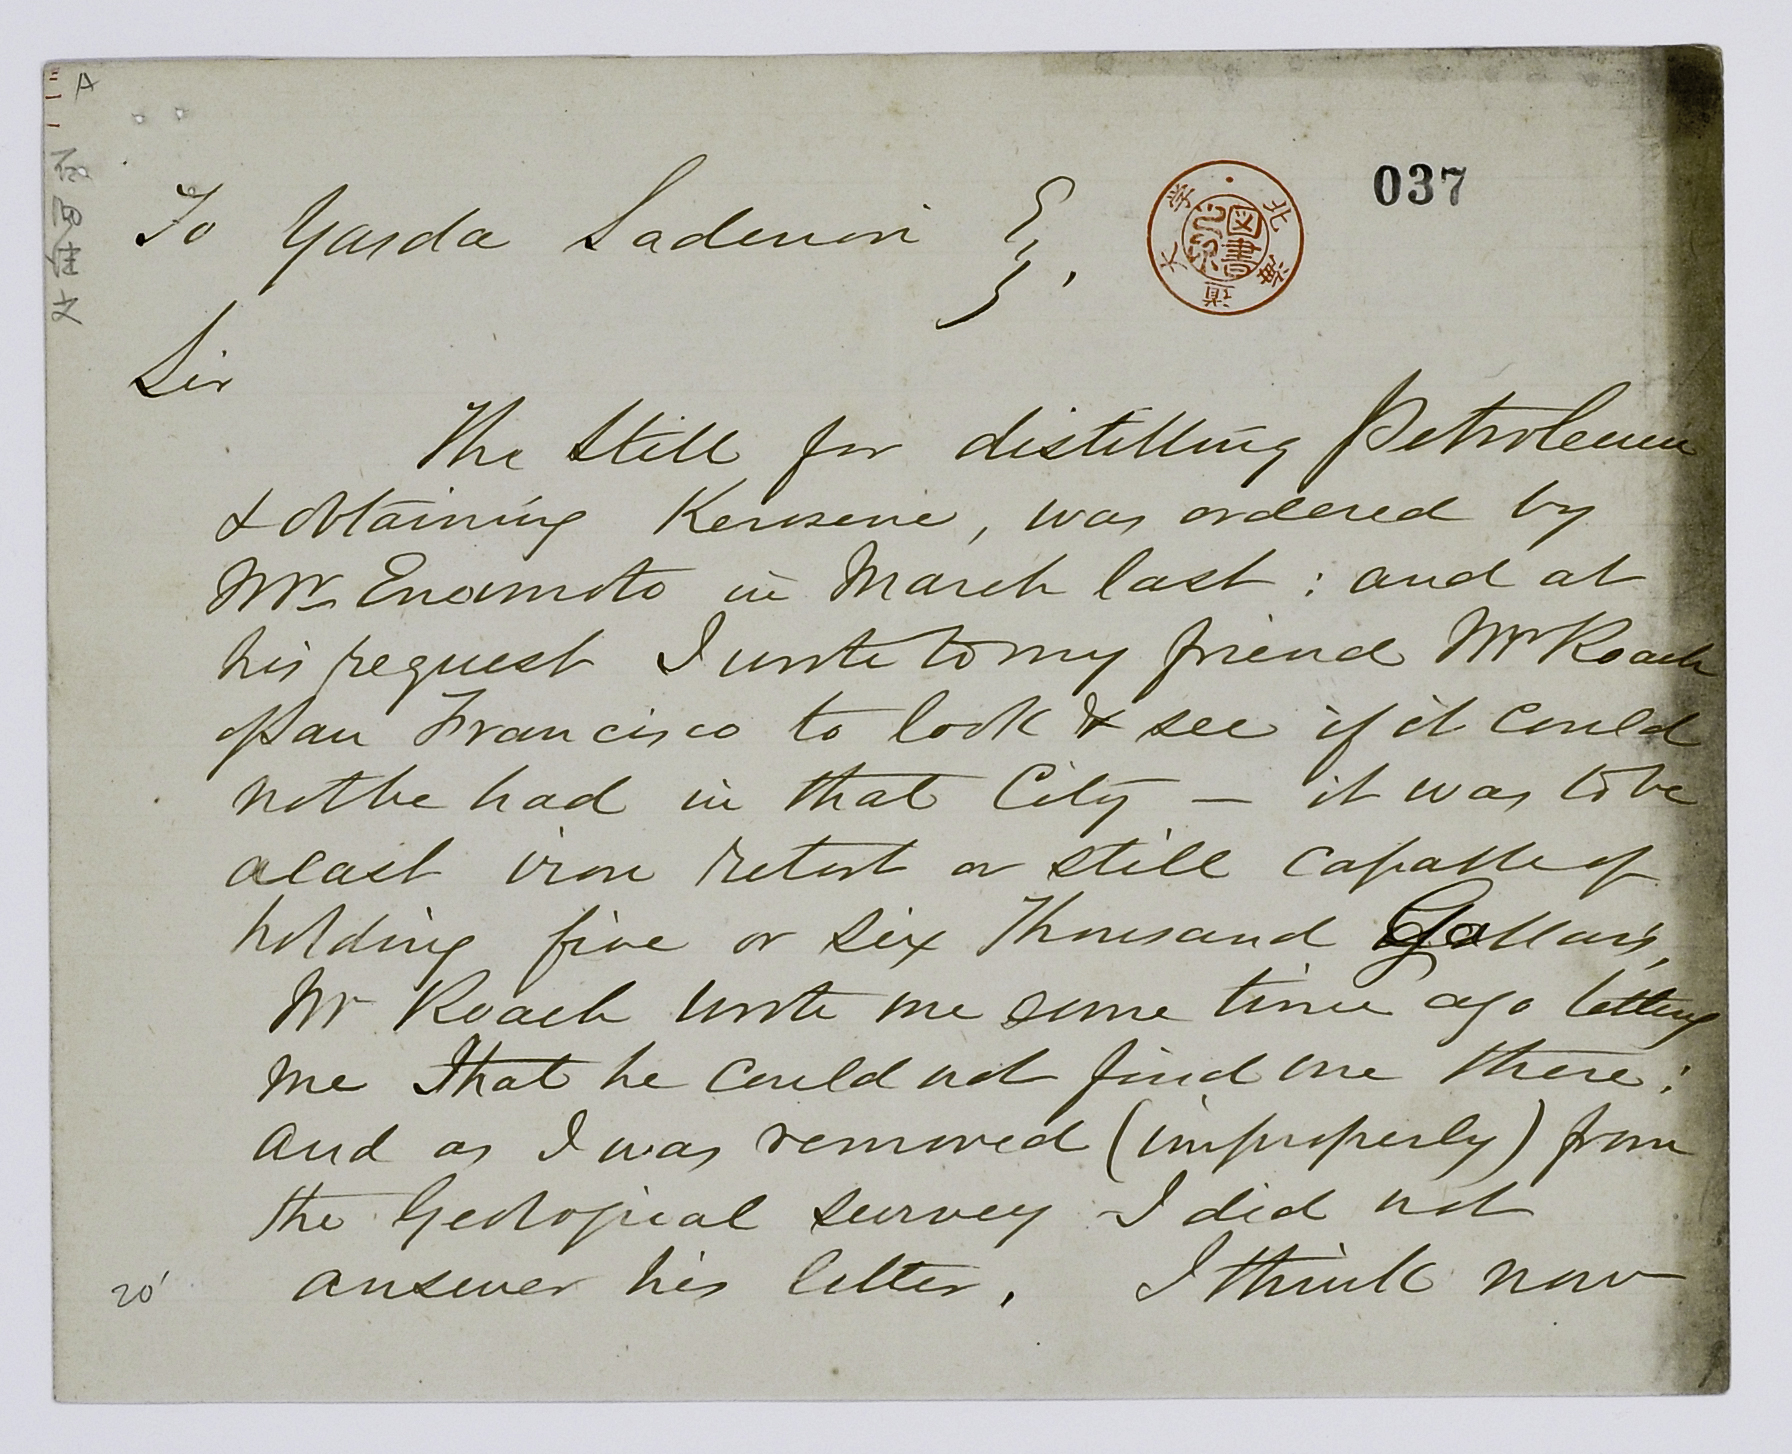 A
037
To Yasda Sadenori Esq,
Sir
The Still for distilling Petroleum
& obtaining Kerosene, was ordered by
Mr Enomoto in March last : and at
his request I wrote to my friend Mr Roach
of San Francisco to look & see if it could
not be had in that City — it was to be
a cast iron retort or still capable of
holding five or six Thousand Gallons,
Mr Roach wrote me some time ago letting
me that he could not find one there ;
and as I was removed (improperly) from
the Geological survey I did not
answer his letter. I think now
20'
北海道大学
図書